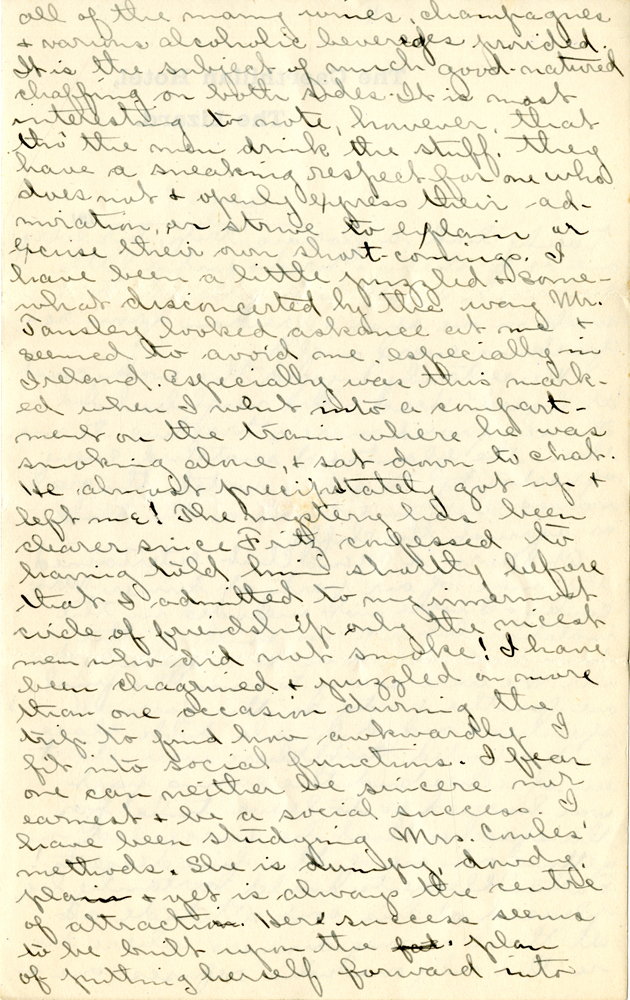 all of the many wines, champagnes
& various alcoholic beverages provided.
It is the subject of much good-natured
chaffing on both sides. It is most
interesting to note, however, that
tho' the men drink the stuff, they
have a sneaking respect for one who
does not & openly express their ad-
miration, or strive to explain or
excuse their own short-comings. I
have been a little puzzled & some-
what disconcerted by the way Mr.
Tansley looked askance at me &
seemed to avoid me, especially in
Ireland. Especially was this mark-
ed when I went into a compart-
ment on the train where he was
smoking alone, & sat down to chat.
He almost precipitately got up &
left me! The mystery has been
clearer since Fritz confessed to
having told him shortly before
that I admitted to my innermost
circle of friendship only the nicest
men who did not smoke! I have
been chagrined & puzzled on more
than one occasion during the
trip to find how awkwardly I
fit into social functions. I fear
one can neither be sincere nor
earnest & be a social success. I
have been studying Mrs. Cowles'
methods. She is dumpy, dowdy,
plain & yet is always the centre
of attraction. Her success seems
to be built upon the plan
of putting herself forward into